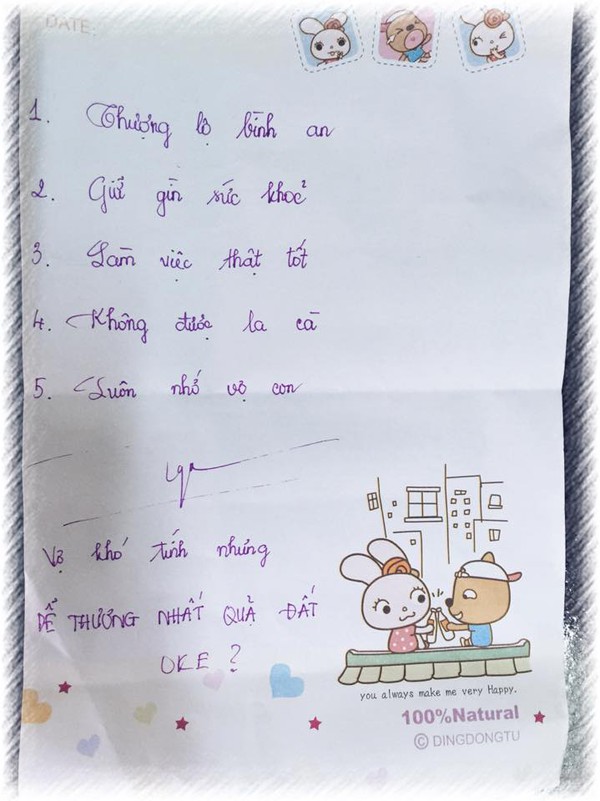 DATE:
1. Thượng lộ bình an
2. Giữ gìn sức khoẻ
3. Làm việc thật tốt
4. Không được la cà
5. Luôn nhớ vợ con
Vợ khó tính nhưng
DỄ THƯƠNG NHẤT QUẢ ĐẤT
OKE ?
you always make me very Happy.
100%Natural
© DINGDONGTU